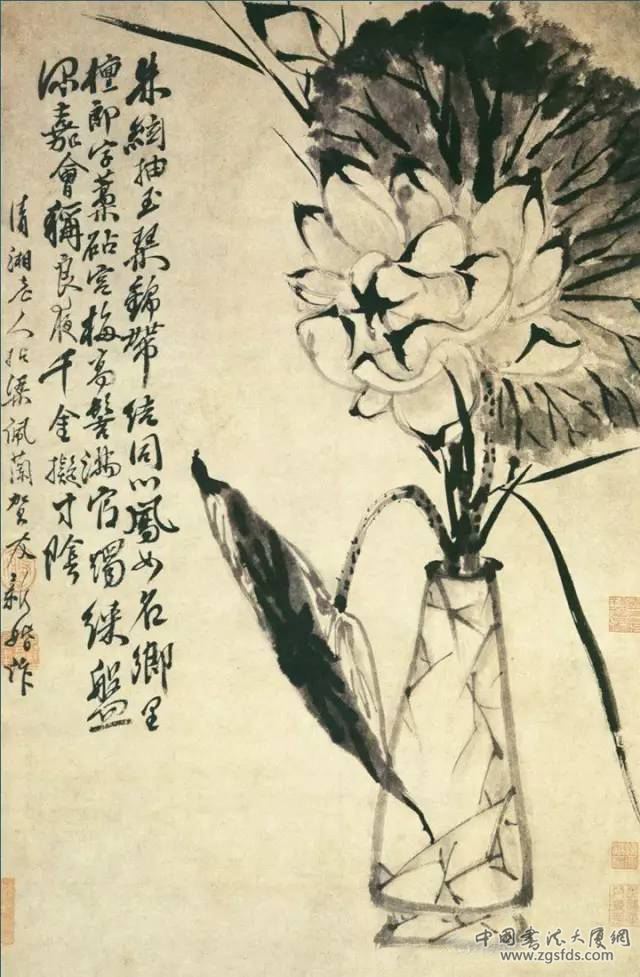 朱絃抽玉琴錦帶結同心鳳女名鄉里
檀郎字藁砧宮梅高髻滿官燭綠盤
深嘉會稱良夜千金擬寸陰
清湘老人拈梁佩蘭賀友新婚作
中國書法大廈網
www.zgsfds.com